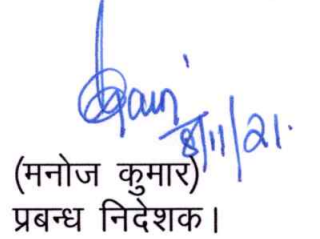 8/11/21.
(मनोज कुमार)
प्रबन्ध निदेशक।